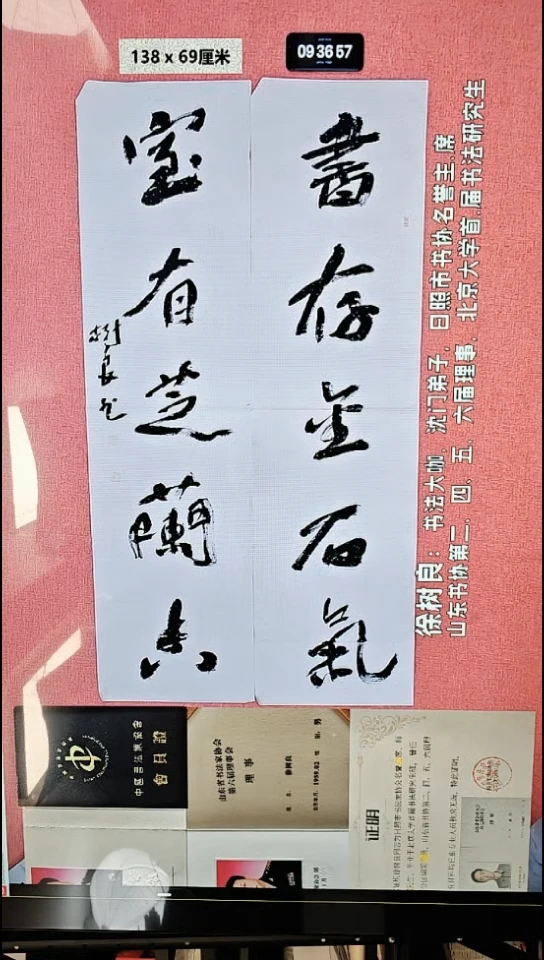 138 x 69厘米
09 36 57
書存金石氣
室有芝蘭香
樹良書
徐树良：书法大咖，沈门弟子，日照市书协名誉主席
山东书协第二、四、五、六届理事，北京大学首届书法研究生
中国书法家协会
會員證
山东省书法家协会
第六届理事会
理事
徐树良
男
证明